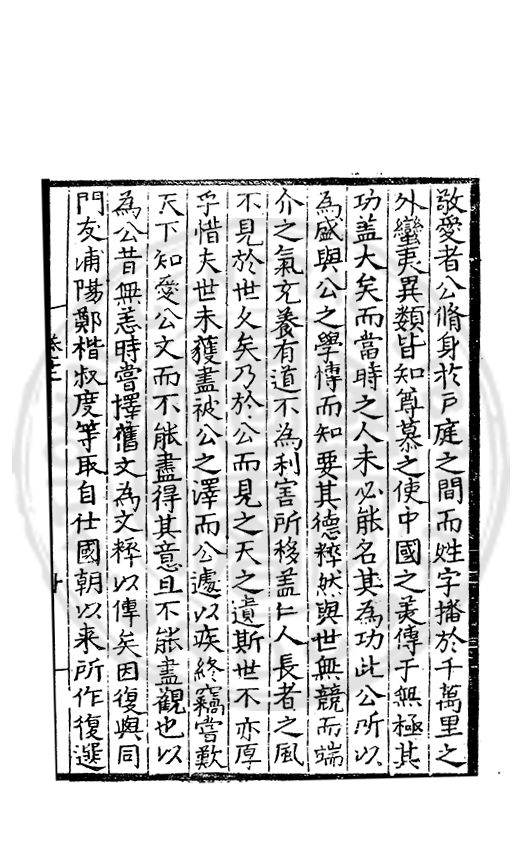 敬愛者公脩身於戶庭之間而姓字播於千萬里之
外蠻夷異類皆知尊慕之使中國之美傳于無極其
功盖大矣而當時之人未必能名其為功此公所以
為盛與公之學愽而知要其德粹然與世無競而端
介之氣充養有道不為利害所移盖仁人長者之風
不見於世久矣乃於公而見之天之遺斯世不亦厚
乎惜夫世未獲盡被公之澤而公遽以疾終竊嘗歎
天下知愛公文而不能盡得其意且不能盡觀也以
為公昔無恙時嘗擇舊文為文粹以傳矣因復與同
門友浦陽鄭楷叔度等取自仕國朝以来所作復選